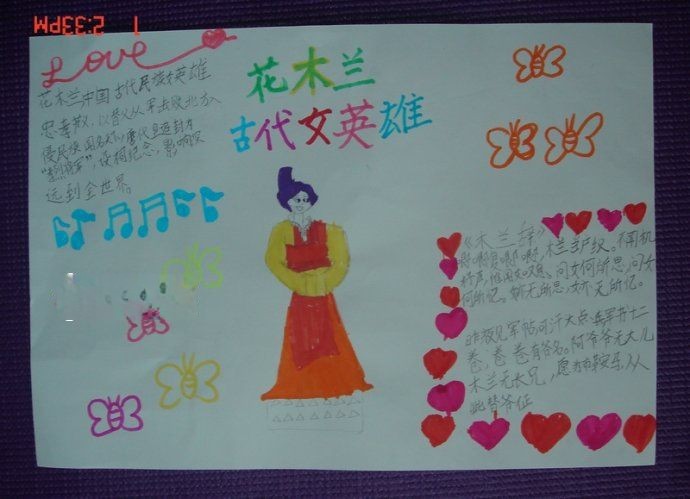 1 2:33PM
Love
花木兰
古代女英雄
花木兰中国古代民族女英雄
忠孝 以替父从军击败北方
侵民族闻名天下,唐代皇追封为
"孝烈将军",设祠纪念,影响
远到全世界。
《木兰辞》
唧唧复唧唧,木兰当户织。不闻机
杼声,惟闻女叹息。问女何所思,问女
何所忆。女亦无所思,女亦无所忆。
昨夜见军帖,可汗大点兵,军书十二
卷,卷卷有爷名。阿爷无大儿
木兰无长兄,愿为市鞍马,从
此替爷征